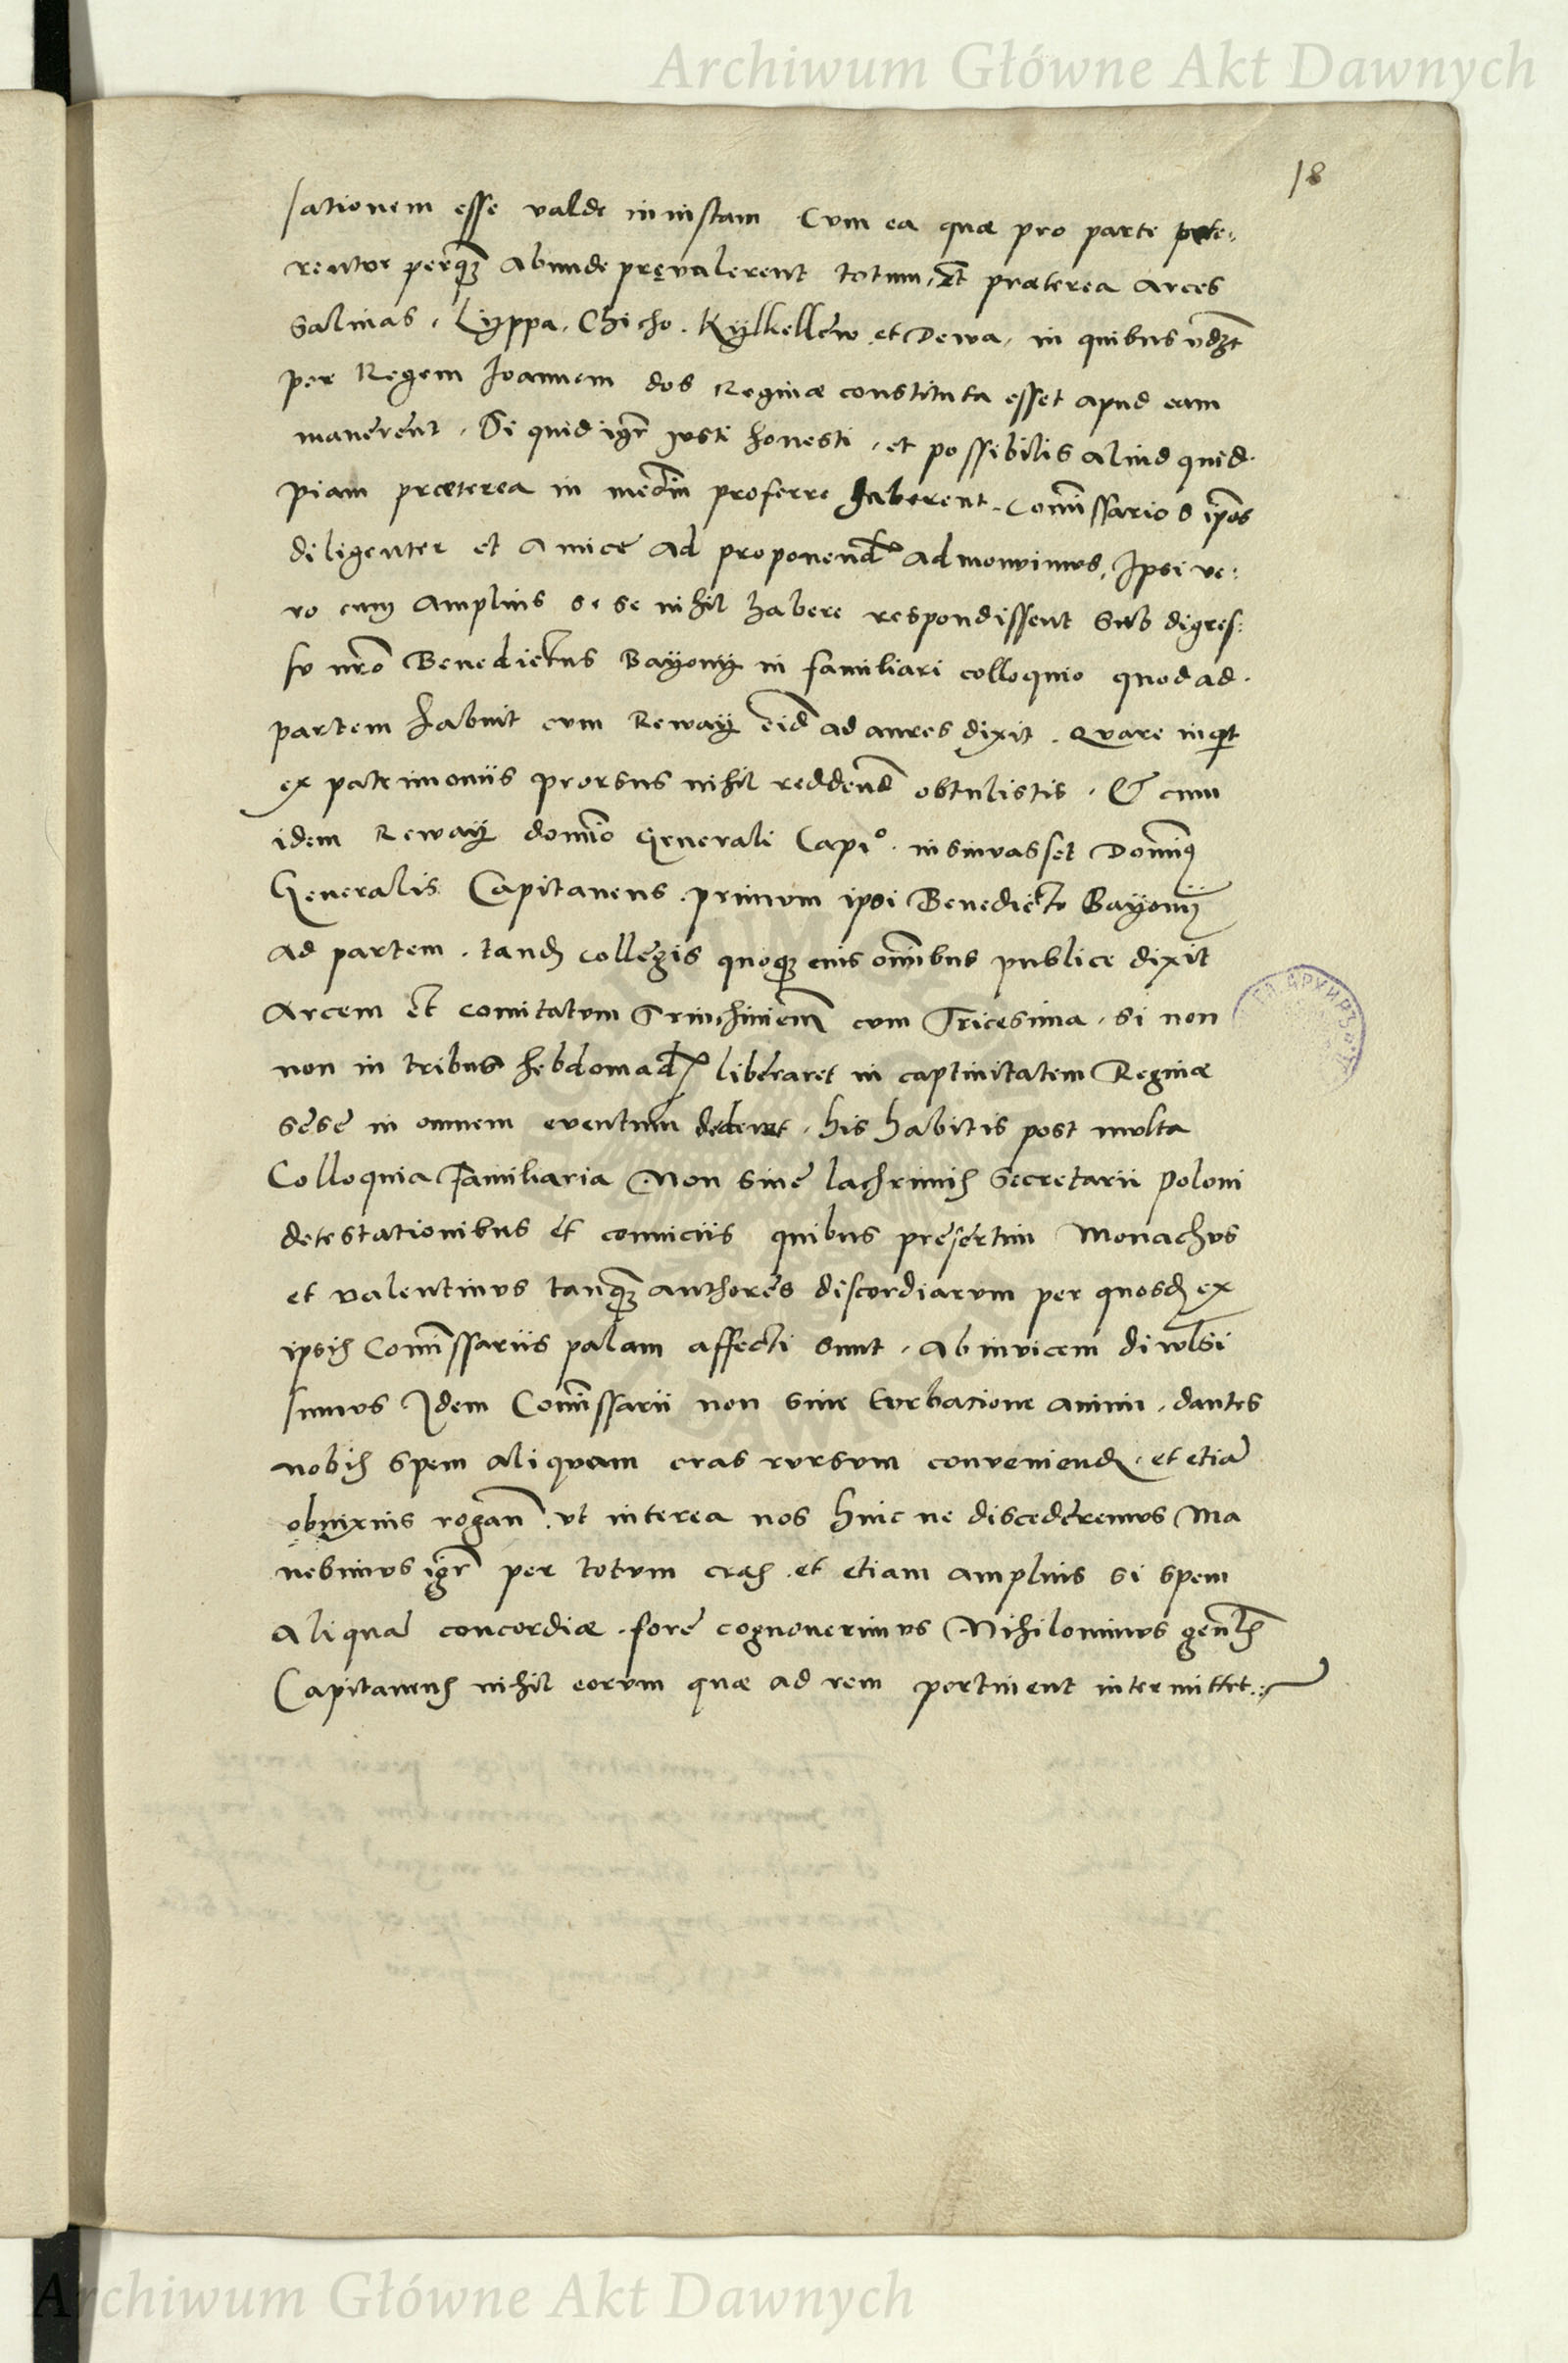 Archiwum Główne Akt Dawnych
18
sationem esse valde iniustam Cvm ea quæ pro parte pete:
rentvr perq̃ʒ abunde pręvalerent totum, Et præterea arces
Salinas, Lyppa, Chicho. Kylkellew et Dewa, in quibus vdʒt
per Regem Ioannem dos Reginæ constituta esset apud eam
manerent, Si quid igr̃ ivsti honesti, et possibilis aliud quid.
piam præterea in mediũ proferre haberent, Com̃issarios ip̃os
diligenter et amice ad proponend admonvimvs, Ipsi ve:
ro cum amplius sese nihil habere respondissent Sub digres:
sv nr̃o Benedictus Bayony in familiari colloquio quod ad.
partem habuit cvm Reway eid̃ ad aures dixit. Qvare inqt
ex patrimoniis prorsus nihil reddend̃ obtulistis, Et cum
idem Reway domĩo Generali Capᵒ. insinvasset Domin9
Generalis Capitaneus. primvm ipsi Benedicto Bayony
ad partem. tand collegis quoqʒ eius om̃ibus publice dixit
Arcem Et comitatvm Trinchiniem̃ cvm Tricesima, si non
non in tribus hebdomad liberaret in captiuitatem Reginæ
sese in omnem eventum dederet, his habitis post mvlta
Colloquia Familiaria Non sine lachrimis Secretarii Poloni
detestationibus et conuiciis quibus presertim Monachvs
et valentinvs tanq̃ʒ anthores discordiarvm per quosd ex
ipsis Com̃issariis palam affecti sunt, ab invicem divulsi
sumvs Idem Com̃issarii non sine tvrbatione animi, dantes
nobis spem aliqvam cras rvrsvm conveniend, et etiã
obnixius rogan̄. vt interea nos hinc ne discederemvs Ma
nebimvs igr̃ per totvm cras. et etiam amplius si spem
aliquã concordiæ. fore cognouerimvs Nihilominvs gen̄lis
Capitaneus nihil eorvm quæ ad rem pertinent intermittet
Archiwum Główne Akt Dawnych